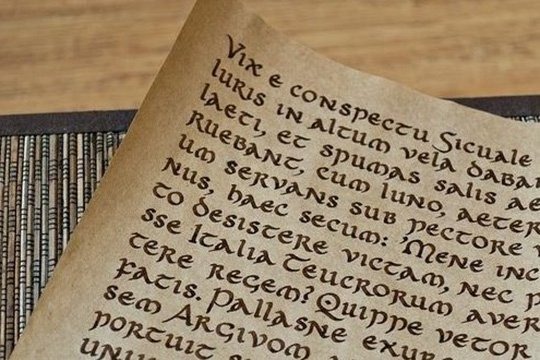 Vix e conspectu Sicule
luris in altum vela daban
laeti, et spumas salis ae
ruebant, cum Iuno, aeter
um servans sub pectore v
nus, haec secum: 'Mene inc
to desistere victam, nec p
sse Italia Teucrorum aver
tere regem? Quippe vetor
fatis. Pallasne exur
sem Argivom a
portuit s
unius